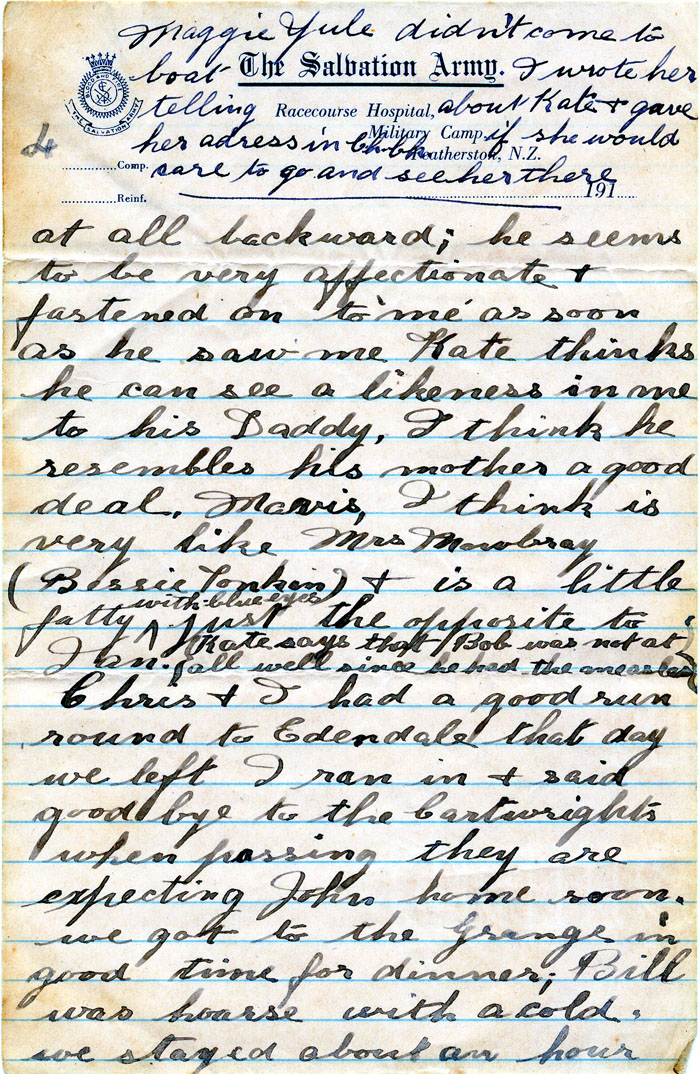 Maggie Yule didn't come to
boat The Salvation Army. I wrote her
telling Racecourse Hospital, about Kate & gave
her adress in Chch Military Camp, if she would
Featherston, N.Z.
4
care to go and see her there
............Comp.
............Reinf. 191.....
THE SALVATION ARMY
at all backward; he seems
to be very affectionate &
fastened on to me as soon
as he saw me Kate thinks
he can see a likeness in me
to his Daddy, I think he
resembles his mother a good
deal, Mavis, I think is
very like Mrs Mowbray
(Bessie Tonkin) & is a little
with blue eyes
fatty just the opposite to
Ian. (Kate says that Bob was not at
all well since he had the measles)
Chris & I had a good run
round to Edendale that day
we left I ran in & said
good bye to the Cartwrights
when passing they are
expecting John home soon.
we got to the Grange in
good time for dinner; Bill
was hoarse with a cold.
we stayed about an hour